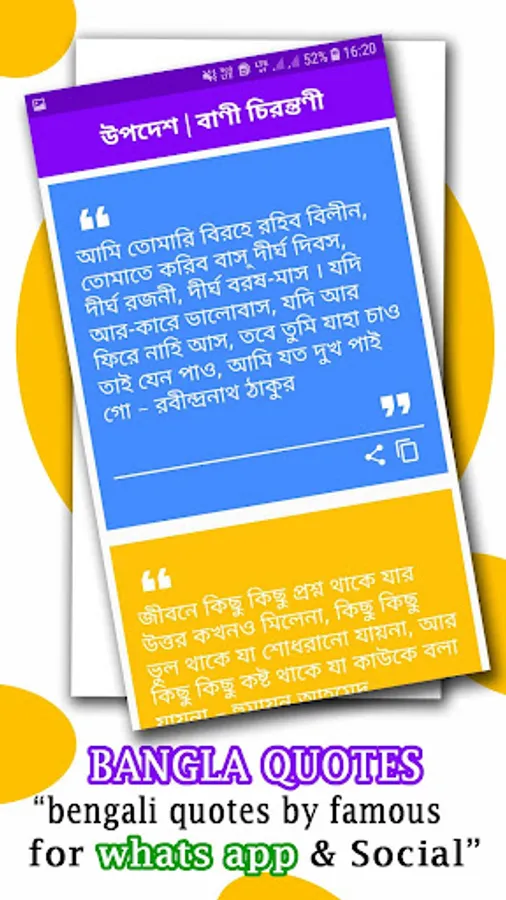 52% 16:20
উপদেশ | বাণী চিরন্তণী
“
আমি তোমারি বিরহে রহিব বিলীন,
তোমাতে করিব বাস্ দীর্ঘ দিবস,
দীর্ঘ রজনী, দীর্ঘ বরষ-মাস । যদি
আর-কারে ভালোবাস, যদি আর
ফিরে নাহি আস, তবে তুমি যাহা চাও
তাই যেন পাও, আমি যত দুখ পাই
গো – রবীন্দ্রনাথ ঠাকুর
”
“
জীবনে কিছু কিছু প্রশ্ন থাকে যার
উত্তর কখনও মিলেনা, কিছু কিছু
ভুল থাকে যা শোধরানো যায়না, আর
কিছু কিছু কষ্ট থাকে যা কাউকে বলা
যায়না – হুমায়ূন আহমেদ
BANGLA QUOTES
“bengali quotes by famous
for whats app & Social”